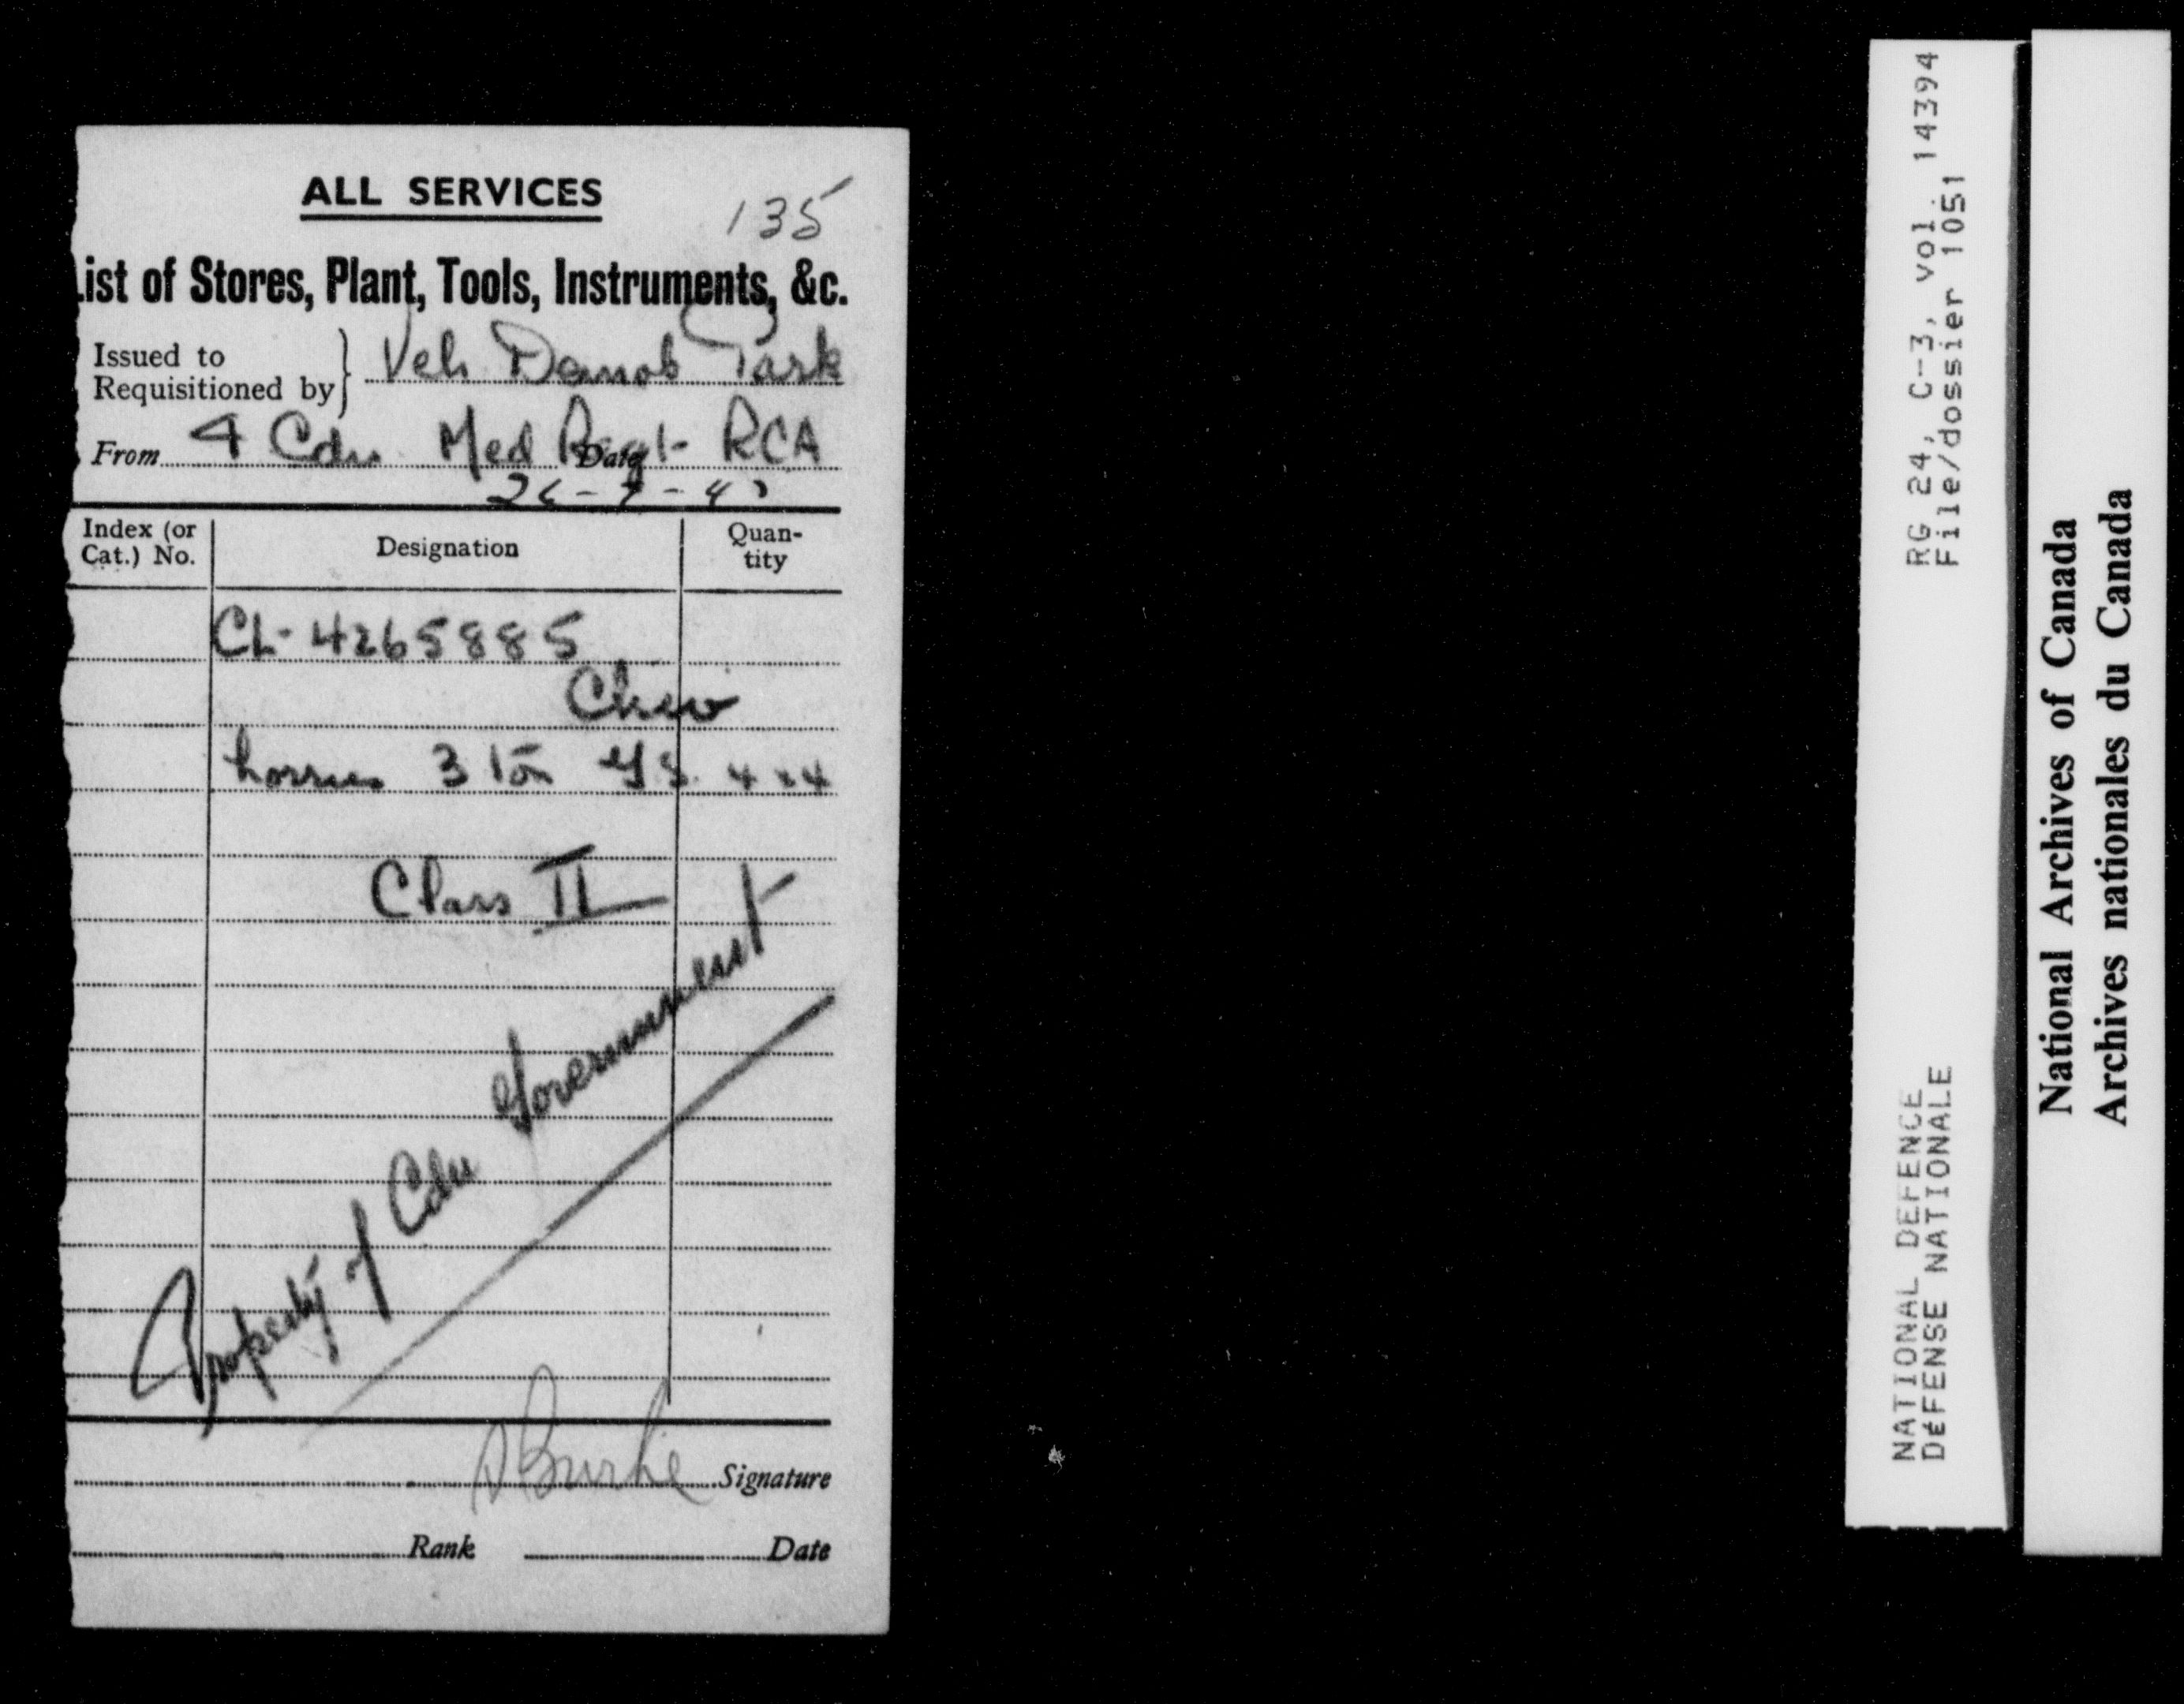 ALL SERVICES
135
List of Stores, Plant, Tools, Instruments, &c.
Issued to
Requisitioned by } Veh Demob Park
From 4 Cdn Med Regt RCA
Date
Index (or Cat.) No.
Designation
Quan-tity
CL-4265885
Chev
Lorries 3 ton GS. 4x4
Class II
Property of Cdn Government
Burke Signature
Rank
Date
RG 24, C-3, vol. 14394
File/dossier 1051
NATIONAL DEFENCE
DéFENSE NATIONALE
National Archives of Canada
Archives nationales du Canada